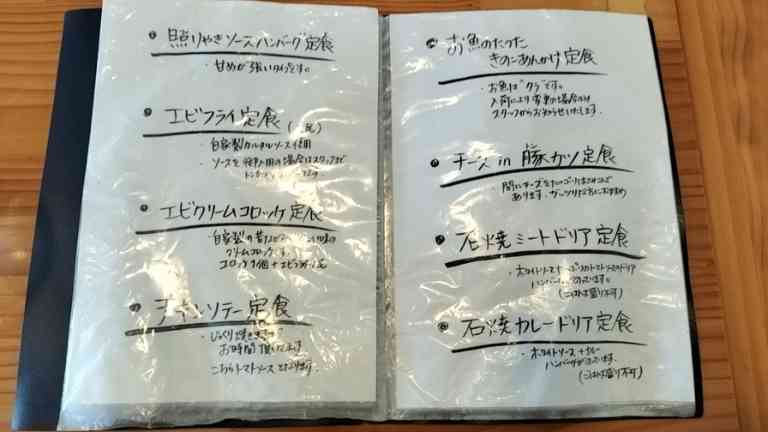 照りやきソースハンバーグ定食
・甘めが強いタイプです。
エビフライ定食
・自家製タルタルソース使用
・ソースを 場合はスタッフまで
エビクリームコロッケ定食
・自家製の
クリームコロッケ
コロッケ1個+エビフライ
チキンソテー定食
・じっくり焼きますので
お時間頂いてます
こちらトマトソースとなります。
お魚のたつた
きのこあんかけ定食
・お魚は"タラ"です。
入荷により変更の場合は
スタッフからお知らせいたします。
チーズ in 豚カツ定食
間にチーズを
あります。ガッツリ におすすめ
石焼ミートドリア定食
・ホワイトソース
ハンバーグ
(ごはん大盛り不可)
石焼カレードリア定食
・ホワイトソース+カレー
ハンバーグが
(ごはん大盛り不可)